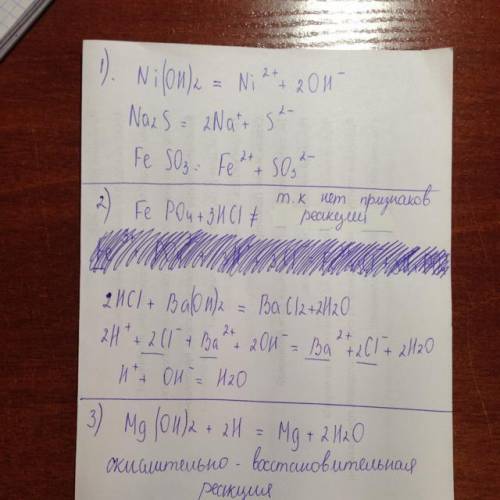 1). Ni(OH)2 = Ni²⁺ + 2OH⁻
Na2S = 2Na⁺ + S²⁻
Fe SO3 = Fe²⁺ + SO3²⁻
2) Fe PO4 + 3HCl ≠ т.к нет признаков
реакции
2HCl + Ba(OH)2 = BaCl2 + 2H2O
2H⁺ + 2Cl⁻ + Ba²⁺ + 2OH⁻ = Ba²⁺ + 2Cl⁻ + 2H2O
H⁺ + OH⁻ = H2O
3) Mg(OH)2 + 2H = Mg + 2H2O
окислительно - восстановительная
реакция